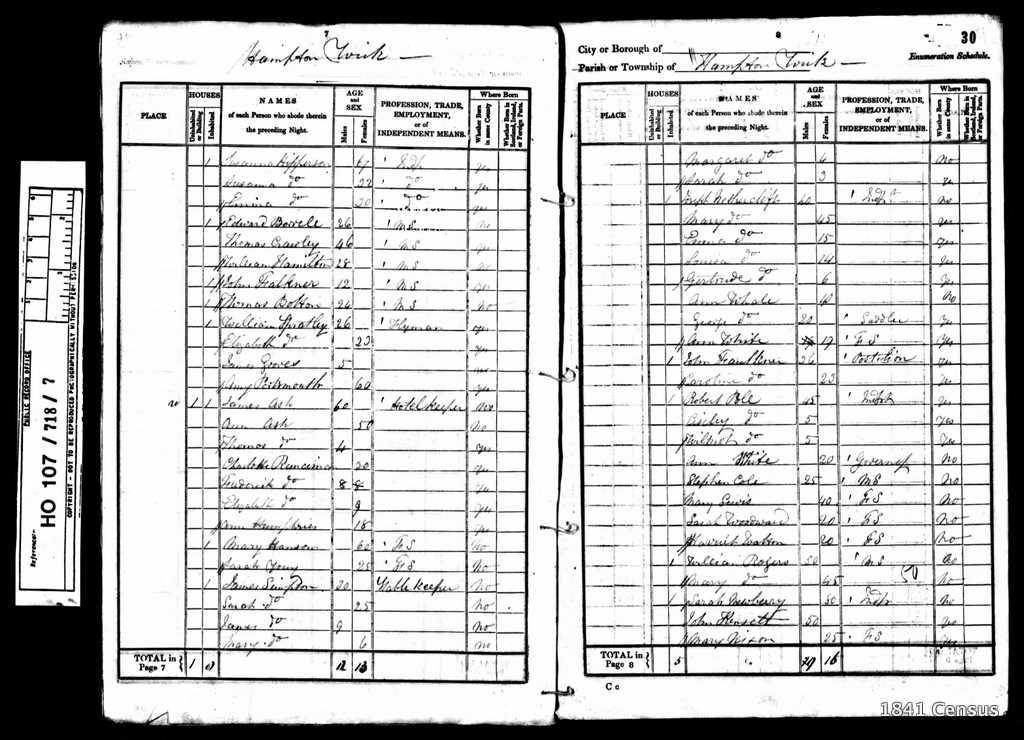 7
Hampton Wick
PLACE
HOUSES
Uninhabited or Building
Inhabited
NAMES
of each Person who abode therein the preceding Night.
AGE and SEX
Males
Females
PROFESSION, TRADE, EMPLOYMENT, or of INDEPENDENT MEANS.
Where Born
Whether Born in same County
Whether Born in Scotland, Ireland, or Foreign Parts.
1 Susanna 67
Susanna do 22 do yes
do 20 do yes
1 Edward 26 M S no
Thomas 46 M S yes
William Hamilton 28 M S no
1 John Faulkner 12 M S yes
1 Thomas Bolton 24 M S No
1 William Spratley 26 yes
Elizabeth do 23 yes
James Groves 5 yes
Amy 60 yes
1 1 James Ash 60 Hotel Keeper No
Ann Ash 50 No
Thomas do 4 yes
Charlotte Runciman 20 yes
Frederick do 8 yes
Elizabeth do 9 yes
Ann Humphries 18 yes
1 Mary Hanson 60 F S No
Sarah 25 F S No
1 James Simpson 30 Stable Keeper No
Sarah do 25 No
James do 9 No
Mary do 6 No
TOTAL in Page 7 1 12 13
8
30
City or Borough of
Parish or Township of Hampton Wick
Enumeration Schedule.
PLACE
HOUSES
Uninhabited or Building
Inhabited
NAMES
of each Person who abode therein the preceding Night.
AGE and SEX
Males
Females
PROFESSION, TRADE, EMPLOYMENT, or of INDEPENDENT MEANS.
Where Born
Whether Born in same County
Whether Born in Scotland, Ireland, or Foreign Parts.
Margaret do 6 No
Sarah do 3 yes
1 Joseph Netherclift 40 No
Mary do 45 yes
Emma do 15 yes
Louisa do 14 yes
Gertrude do 6 yes
Ann Whale 40 No
George do 20 Saddler yes
Ann White 19 F S yes
1 John Faulkner 26 Postilion yes
Caroline do 23 yes
1 Robert Pole 45 yes
do 5 yes
do 5 yes
Ann White 20 Governess No
Stephen Cole 25 M S No
Mary Lewis 40 F S No
Sarah Woodward 20 F S No
Harriet Watson 20 F S No
1 William Rogers 50 M S No
Mary do 45 No
50
1 Sarah Newberry 30 No
John 50 yes
Mary Nixon 25 F S
TOTAL in Page 8 5 16
C c
PUBLIC RECORD OFFICE
Reference:-
HO 107 / 718 / 7
COPYRIGHT - NOT TO BE REPRODUCED PHOTOGRAPHICALLY WITHOUT PERMISSION
1841 Census